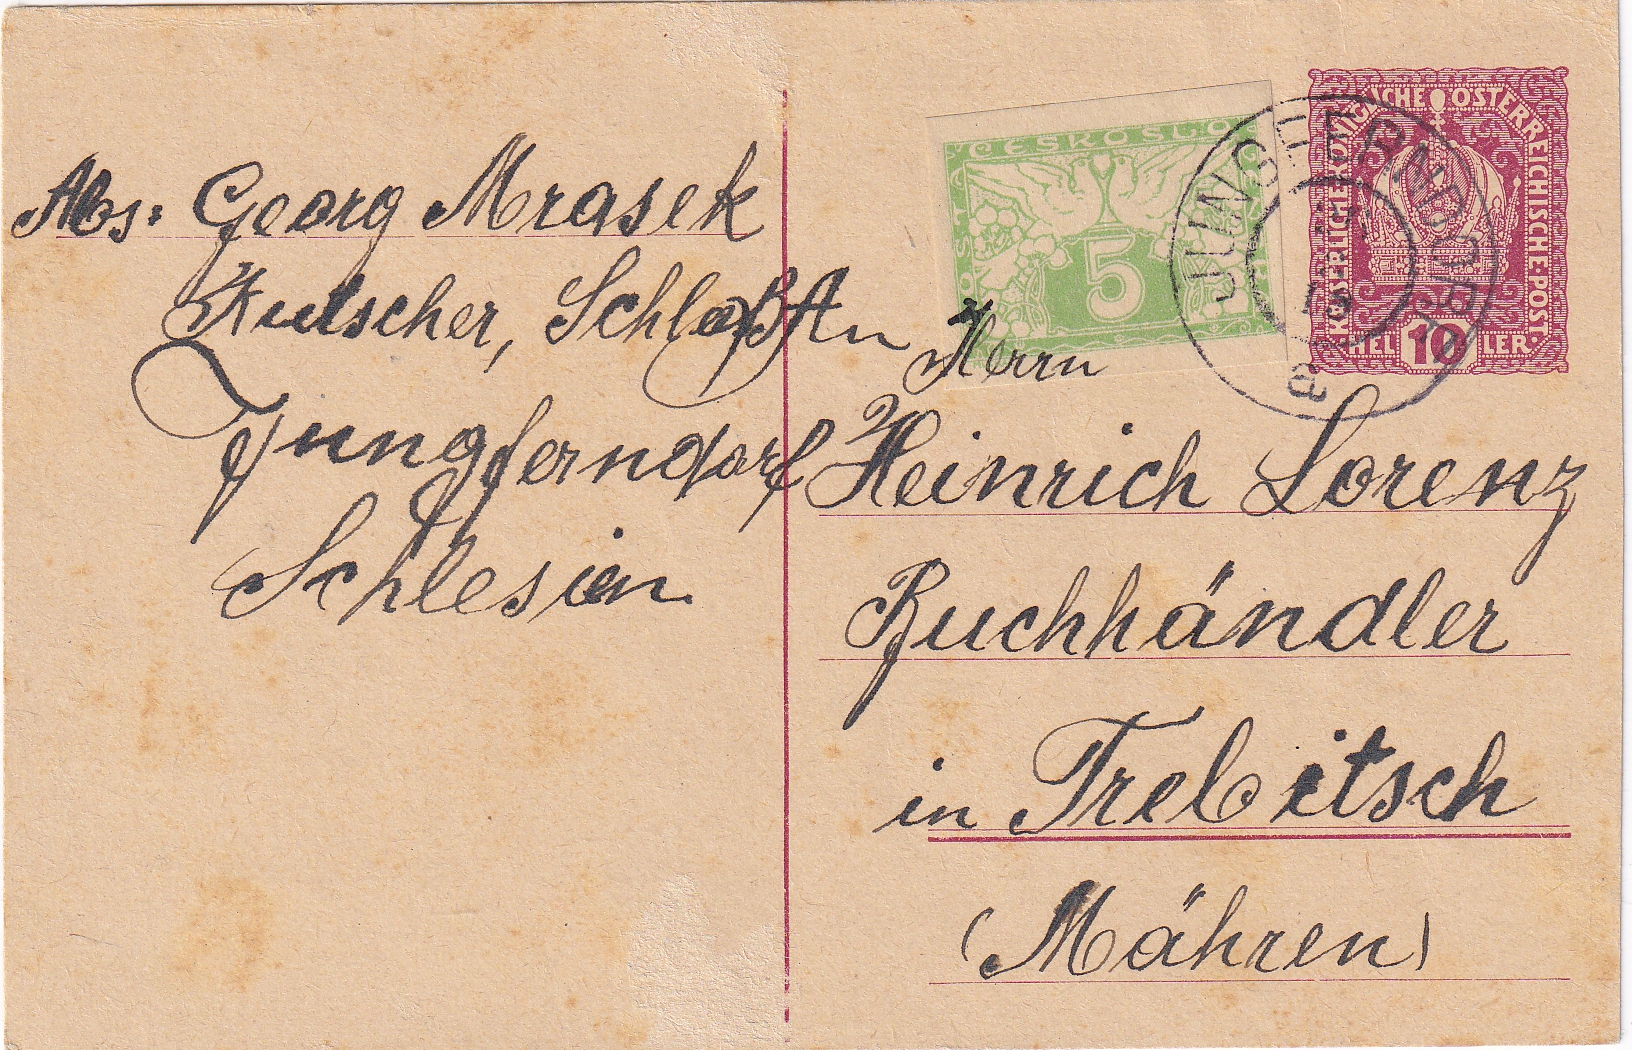 Abs. Georg Mrasek
Kutscher, Schloß
Jungferndorf
Schlesien
ČESKOSLO
5
KAISERLICHE KÖNIGLICHE ÖSTERREICHISCHE POST
HEL 10 LER
JUNGFERNDORF
a
An
Herrn
Heinrich Lorenz
Buchhändler
in Trebitsch
(Mähren)